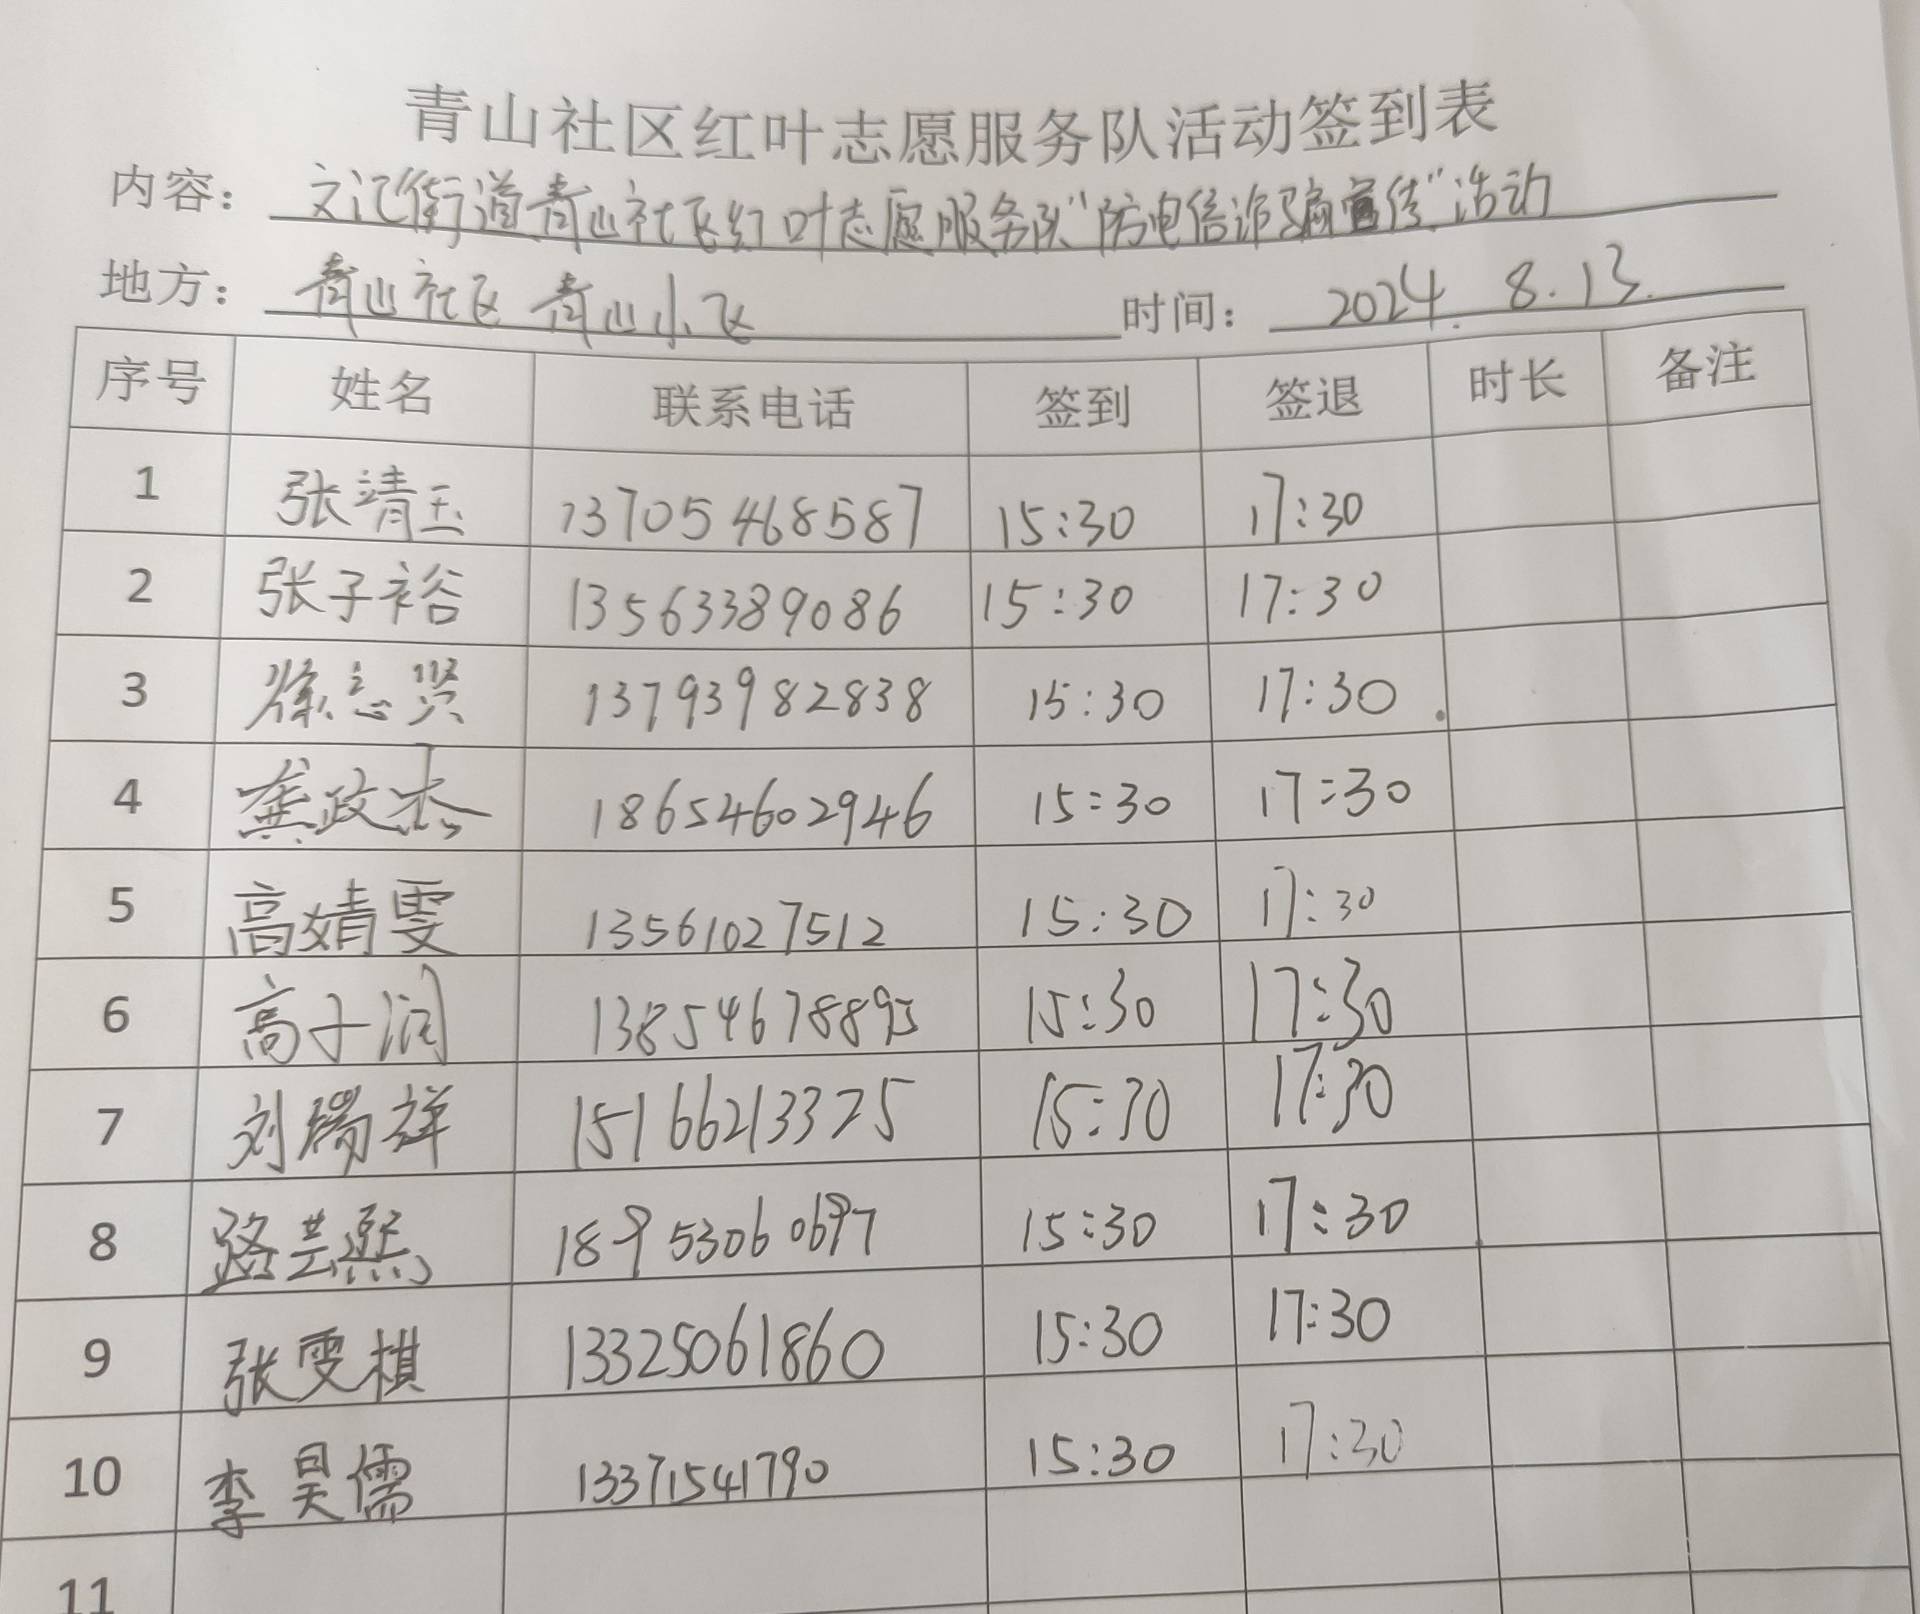 青山社区红叶志愿服务队活动签到表
内容：文汇街道青山社区红叶志愿服务队“防电信诈骗宣传”活动
地方：青山社区 青山小区 时间：2024.8.13.
序号 姓名 联系电话 签到 签退 时长 备注
1 张靖玉 13705468587 15:30 17:30
2 张子裕 13563389086 15:30 17:30
3 徐志贤 13793982838 15:30 17:30
4 龚政杰 18654602946 15:30 17:30
5 高婧雯 13561027512 15:30 17:30
6 高子润 13854678895 15:30 17:30
7 刘瑞祥 15166213375 15:30 17:30
8 路芸熙 15:30 17:30
9 张雯棋 13325061860 15:30 17:30
10 李昊儒 13371541790 15:30 17:30
11